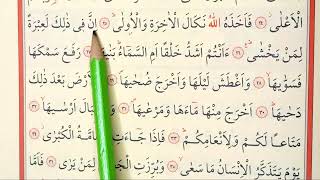 الْاَعْلٰىۘ ﴿٢٤﴾ فَاَخَذَهُ اللّٰهُ نَكَالَ الْاٰخِرَةِ وَالْاُو۫لٰىۜ ﴿٢٥﴾ اِنَّ ف۪ي ذٰلِكَ لَعِبْرَةً
لِمَنْ يَخْشٰىۜ ﴿٢٦﴾ ءَاَنْتُمْ اَشَدُّ خَلْقًا اَمِ السَّمَٓاءُۜ بَنٰيهَا۠ ﴿٢٧﴾ رَفَعَ سَمْكَهَا
فَسَوّٰيهَاۙ ﴿٢٨﴾ وَاَغْطَشَ لَيْلَهَا وَاَخْرَجَ ضُحٰيهَاۖ ﴿٢٩﴾ وَالْاَرْضَ بَعْدَ ذٰلِكَ
دَحٰيهَاۜ ﴿٣٠﴾ اَخْرَجَ مِنْهَا مَٓاءَهَا وَمَرْعٰيهَاۖ ﴿٣١﴾ وَالْجِبَالَ اَرْسٰيهَاۙ ﴿٣٢﴾
مَتَاعًا لَكُمْ وَلِاَنْعَامِكُمْۜ ﴿٣٣﴾ فَاِذَا جَٓاءَتِ الطَّٓامَّةُ الْكُبْرٰىۘ ﴿٣٤﴾
يَوْمَ يَتَذَكَّرُ الْاِنْسَانُ مَا سَعٰىۙ ﴿٣٥﴾ وَبُرِّزَتِ الْجَح۪يمُ لِمَنْ يَرٰى ﴿٣٦﴾ فَاَمَّا